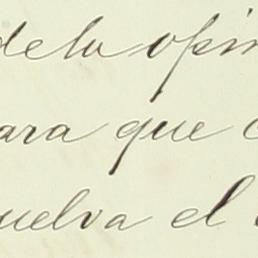 de la opin
ara que
uelva el